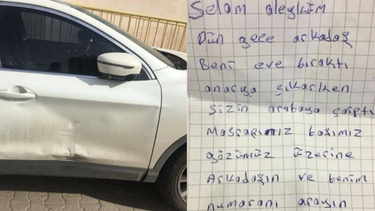 Selam aleyküm
Dün gece arkadaş
Beni eve bıraktı
araçıa çıkarken
Sizin arabaya çarptı
Masrafınız başımız
gözümüz üzerine
Arkadaşın ve benim
numaramı arayın